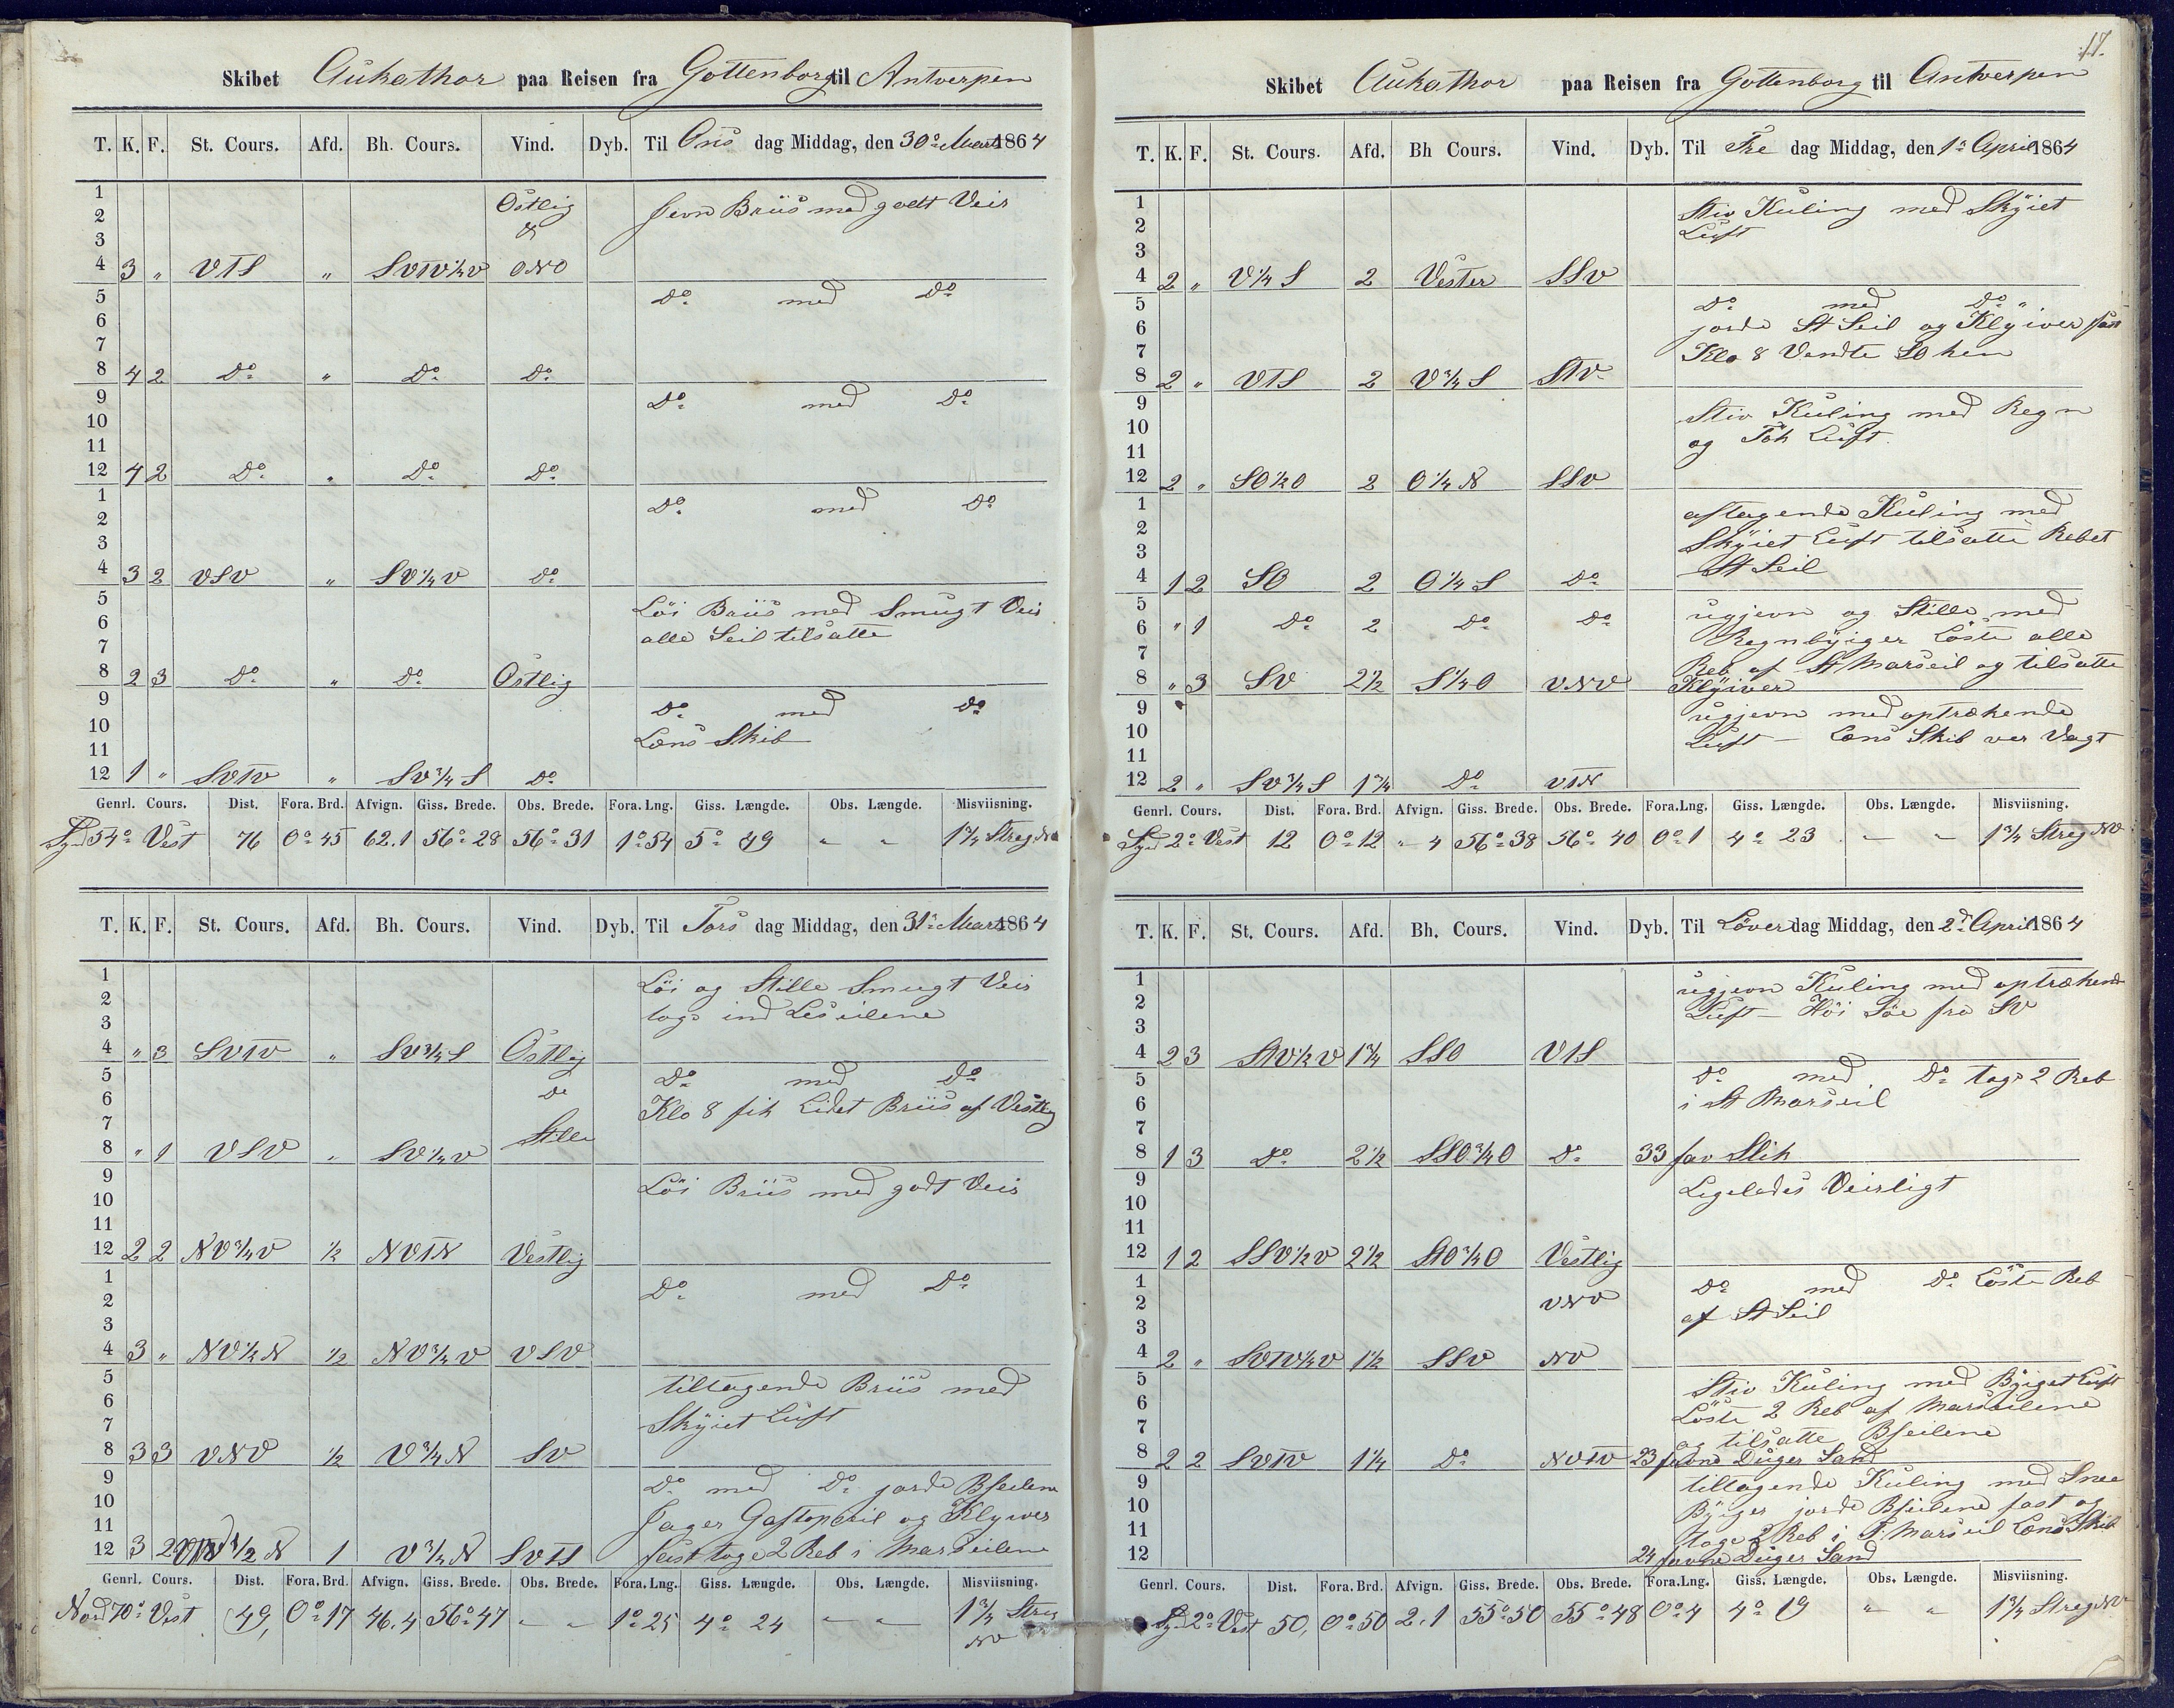 Skibet Aukathor paa Reisen fra Gottenborg til Antverpen
T. K. F. St. Cours. Afd. Bh. Cours. Vind. Dyb. Til Ons dag Middag, den 30te Marts 1864
1 Östlig Jevn Briis med godt Veir
2 &
3
4 3 " VTS " SVTV½V ONO
5 Do med Do
6
7
8 4 2 Do " Do Do
9 Do med Do
10
11
12 4 2 Do " Do Do
1 Do med Do
2
3
4 3 2 VSV " SV¼V Do
5 Löi Briis med Smugt Veir
6 alle Seil tilsatte
7
8 2 3 Do " Do Östlig
9 Do med Do
10 Lens Skib
11
12 1 " SVTV " SV¾S Do
Genrl. Cours. Dist. Fora. Brd. Afvign. Giss. Brede. Obs. Brede. Fora. Lng. Giss. Længde. Obs. Længde. Misviisning.
Syd 54° Vest 76 0° 45 62.1 56° 28 56° 31 1° 54 5° 49 " " 1¾ Streg NV
T. K. F. St. Cours. Afd. Bh. Cours. Vind. Dyb. Til Tors dag Middag, den 31te Marts 1864
1 Löi og Stille Smugt Veir
2 togs ind Leseilene
3
4 " 3 SVTV " SV¾S Östlig
5 Do med Do
6 Do Klo 8 fik Lidet Briis af Vestlig
7 Stille
8 " 1 VSV " SV¼V
9 Löi Briis med godt Veir
10
11
12 2 2 NV¾V ½ NVTN Vestlig
1 Do med Do
2
3
4 3 " NV½N ½ NV¾V VSV
5 tiltagende Briis med
6 Skyiet Luft
7
8 3 3 VNV ½ V¾N SV
9 Do med Do jorde Bseilene
10 Jager Gaftopseil og Klyver
11
12 3 2 ½N 1 V¾N SVTS fast toge 2 Reb i Marseilene
Genrl. Cours. Dist. Fora. Brd. Afvign. Giss. Brede. Obs. Brede. Fora. Lng. Giss. Længde. Obs. Længde. Misviisning.
Nord 70° Vest 49, 0° 17 46.4 56° 47 " " 1° 25 4° 24 " " 1¾ Streg
NV
17.
Skibet Aukathor paa Reisen fra Gottenborg til Antverpen
T. K. F. St. Cours. Afd. Bh Cours. Vind. Dyb. Til Fre dag Middag, den 1te April 1864
1 Stiv Kuling med Skyiet
2 Luft
3
4 2 " V¼S 2 Vester SSV
5 Do med Do
6 jorde St Seil og Klyiver fast
7 Klo 8 Vendte SO hen
8 2 " VTS 2 V¾S STV
9 Stiv Kuling med Regn
10 og Tok Luft
11
12 2 " SO½O 2 O¼N SSV
1 aftagende Kuling med
2 Skyiet Luft tilsatte Rebet
3 St Seil
4 1 2 SO 2 O¼S Do
5 ugjevn og Stille med
6 " 1 Do 2 Do Do Regnbyiger Löste alle
7 Reb af St Marseil og tilsatte
8 " 3 SV 2½ S¼O VNV Klyiver
9 ugjevn med optrækende
10 Luft – Lens Skib ver Vagt
11
12 2 " SV¾S 1¾ Do VTN
Genrl. Cours. Dist. Fora. Brd. Afvign. Giss. Brede. Obs. Brede. Fora. Lng. Giss. Længde. Obs. Længde. Misviisning.
Syd 2° Vest 12 0° 12 " 4 56° 38 56° 40 0° 1 4° 23 " " 1¾ Streg NV
T. K. F. St. Cours. Afd. Bh. Cours. Vind. Dyb. Til Löver dag Middag, den 2d April 1864
1 ugjevn Kuling med optrækende
2 Luft – Höi Söe fra SV
3
4 2 3 STV½V 1¾ SSO VTS
5 Do med Do toge 2 Reb
6 i St Marseil
7
8 1 3 Do 2½ SSO¾O Do 33 fav Slik
9 Legelades Veirligt
10
11
12 1 2 SSV½V 2½ STO¾O Vestlig
1 Do med Do Löste Reb
2 VNV af St Seil
3
4 2 " SVTV½V 1½ SSV NV
5 Stiv Kuling med Byiget Luft
6 Löste 2 Reb af Marseilene
7 og tilsatte Bseilene
8 2 2 SVTV 1¼ Do NVTV 23 favne Duger Sand
9 tiltagende Kuling med Snee
10 Byiger jorde Bseilene fast og
11 toge 2 Reb i F. Marseil Lens Skib
12 24 favne Duger Sand
Genrl. Cours. Dist. Fora. Brd. Afvign. Giss. Brede. Obs. Brede. Fora. Lng. Giss. Længde. Obs. Længde. Misviisning.
Syd 2° Vest 50, 0° 50 2.1 55° 50 55° 48 0° 4 4° 19 " " 1¾ Streg NV